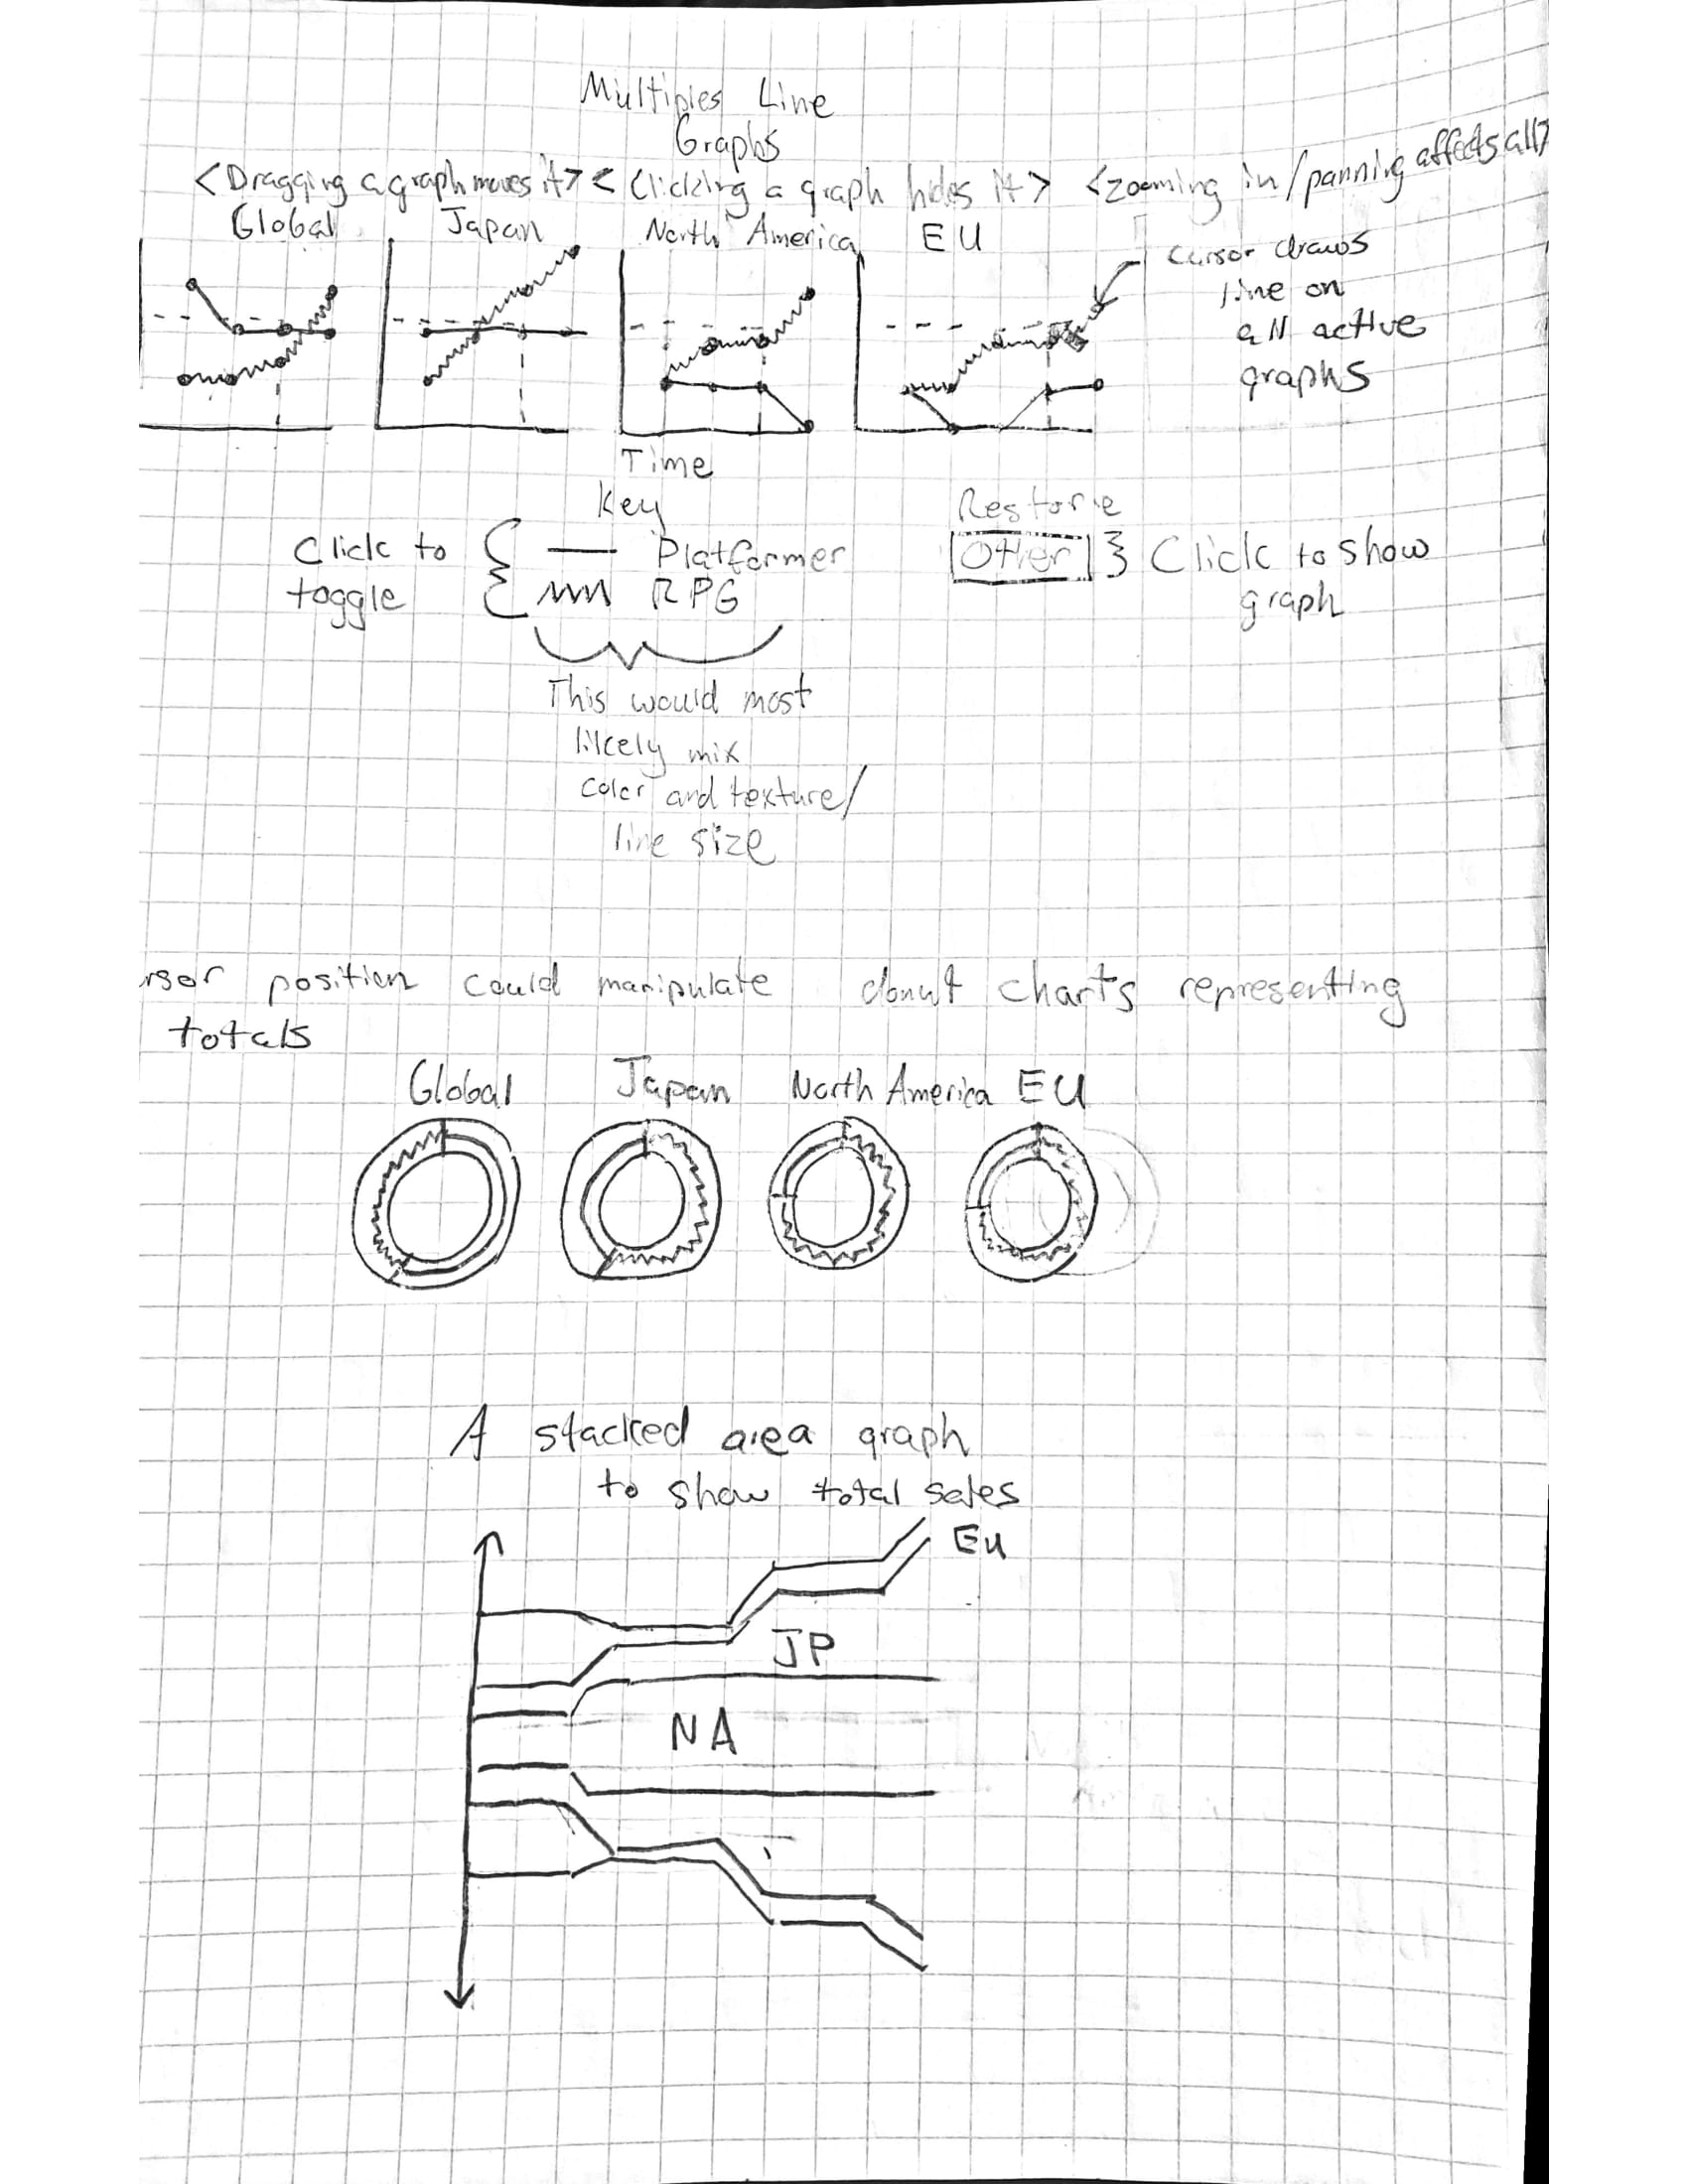 Multiples Line
Graphs
<Dragging a graph moves it> < Clicking a graph hides it> <zooming in/panning affects all>
Global Japan North America EU
cursor draws
line on
all active
graphs
Time
Key
Click to
toggle
Platformer
RPG
Restore
Other
Click to show
graph
This would most
likely mix
color and texture/
line size
rsor position could manipulate donut charts representing
totals
Global Japan North America EU
A stacked area graph
to show total sales
EU
JP
NA